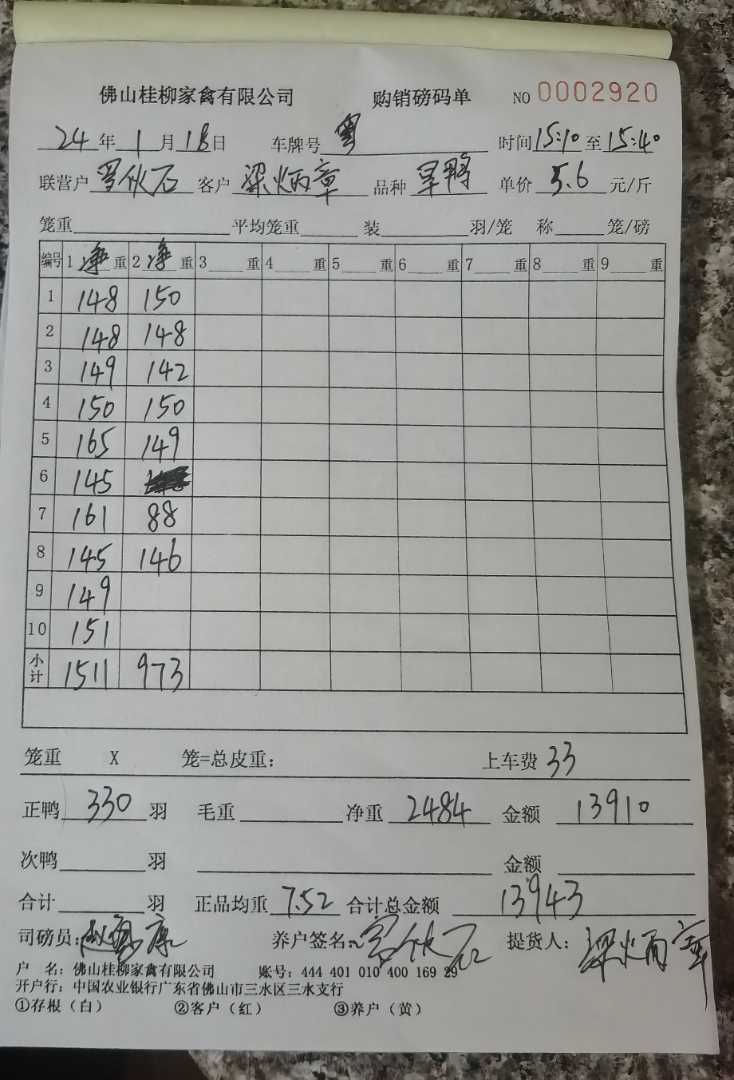 佛山桂柳家禽有限公司 购销磅码单 NO 0002920
24年1月18日 车牌号 粤 时间15:10至15:40
联营户 罗伙石 客户 梁炳章 品种 旱鸭 单价 5.6 元/斤
笼重 平均笼重 装 羽/笼 称 笼/磅
编号 1 净 重 2 净 重 3 重 4 重 5 重 6 重 7 重 8 重 9 重
1 148 150
2 148 148
3 149 142
4 150 150
5 165 149
6 145
7 161 88
8 145 146
9 149
10 151
小计 1511 973
笼重 X 笼=总皮重: 上车费 33
正鸭 330 羽 毛重 净重 2484 金额 13910
次鸭 羽 金额
合计 羽 正品均重 7.52 合计总金额 13943
司磅员: 养户签名: 罗伙石 提货人: 梁炳章
户 名: 佛山桂柳家禽有限公司 账号: 444 401 010 400 169 29
开户行: 中国农业银行广东省佛山市三水区三水支行
①存根（白） ②客户（红） ③养户（黄）